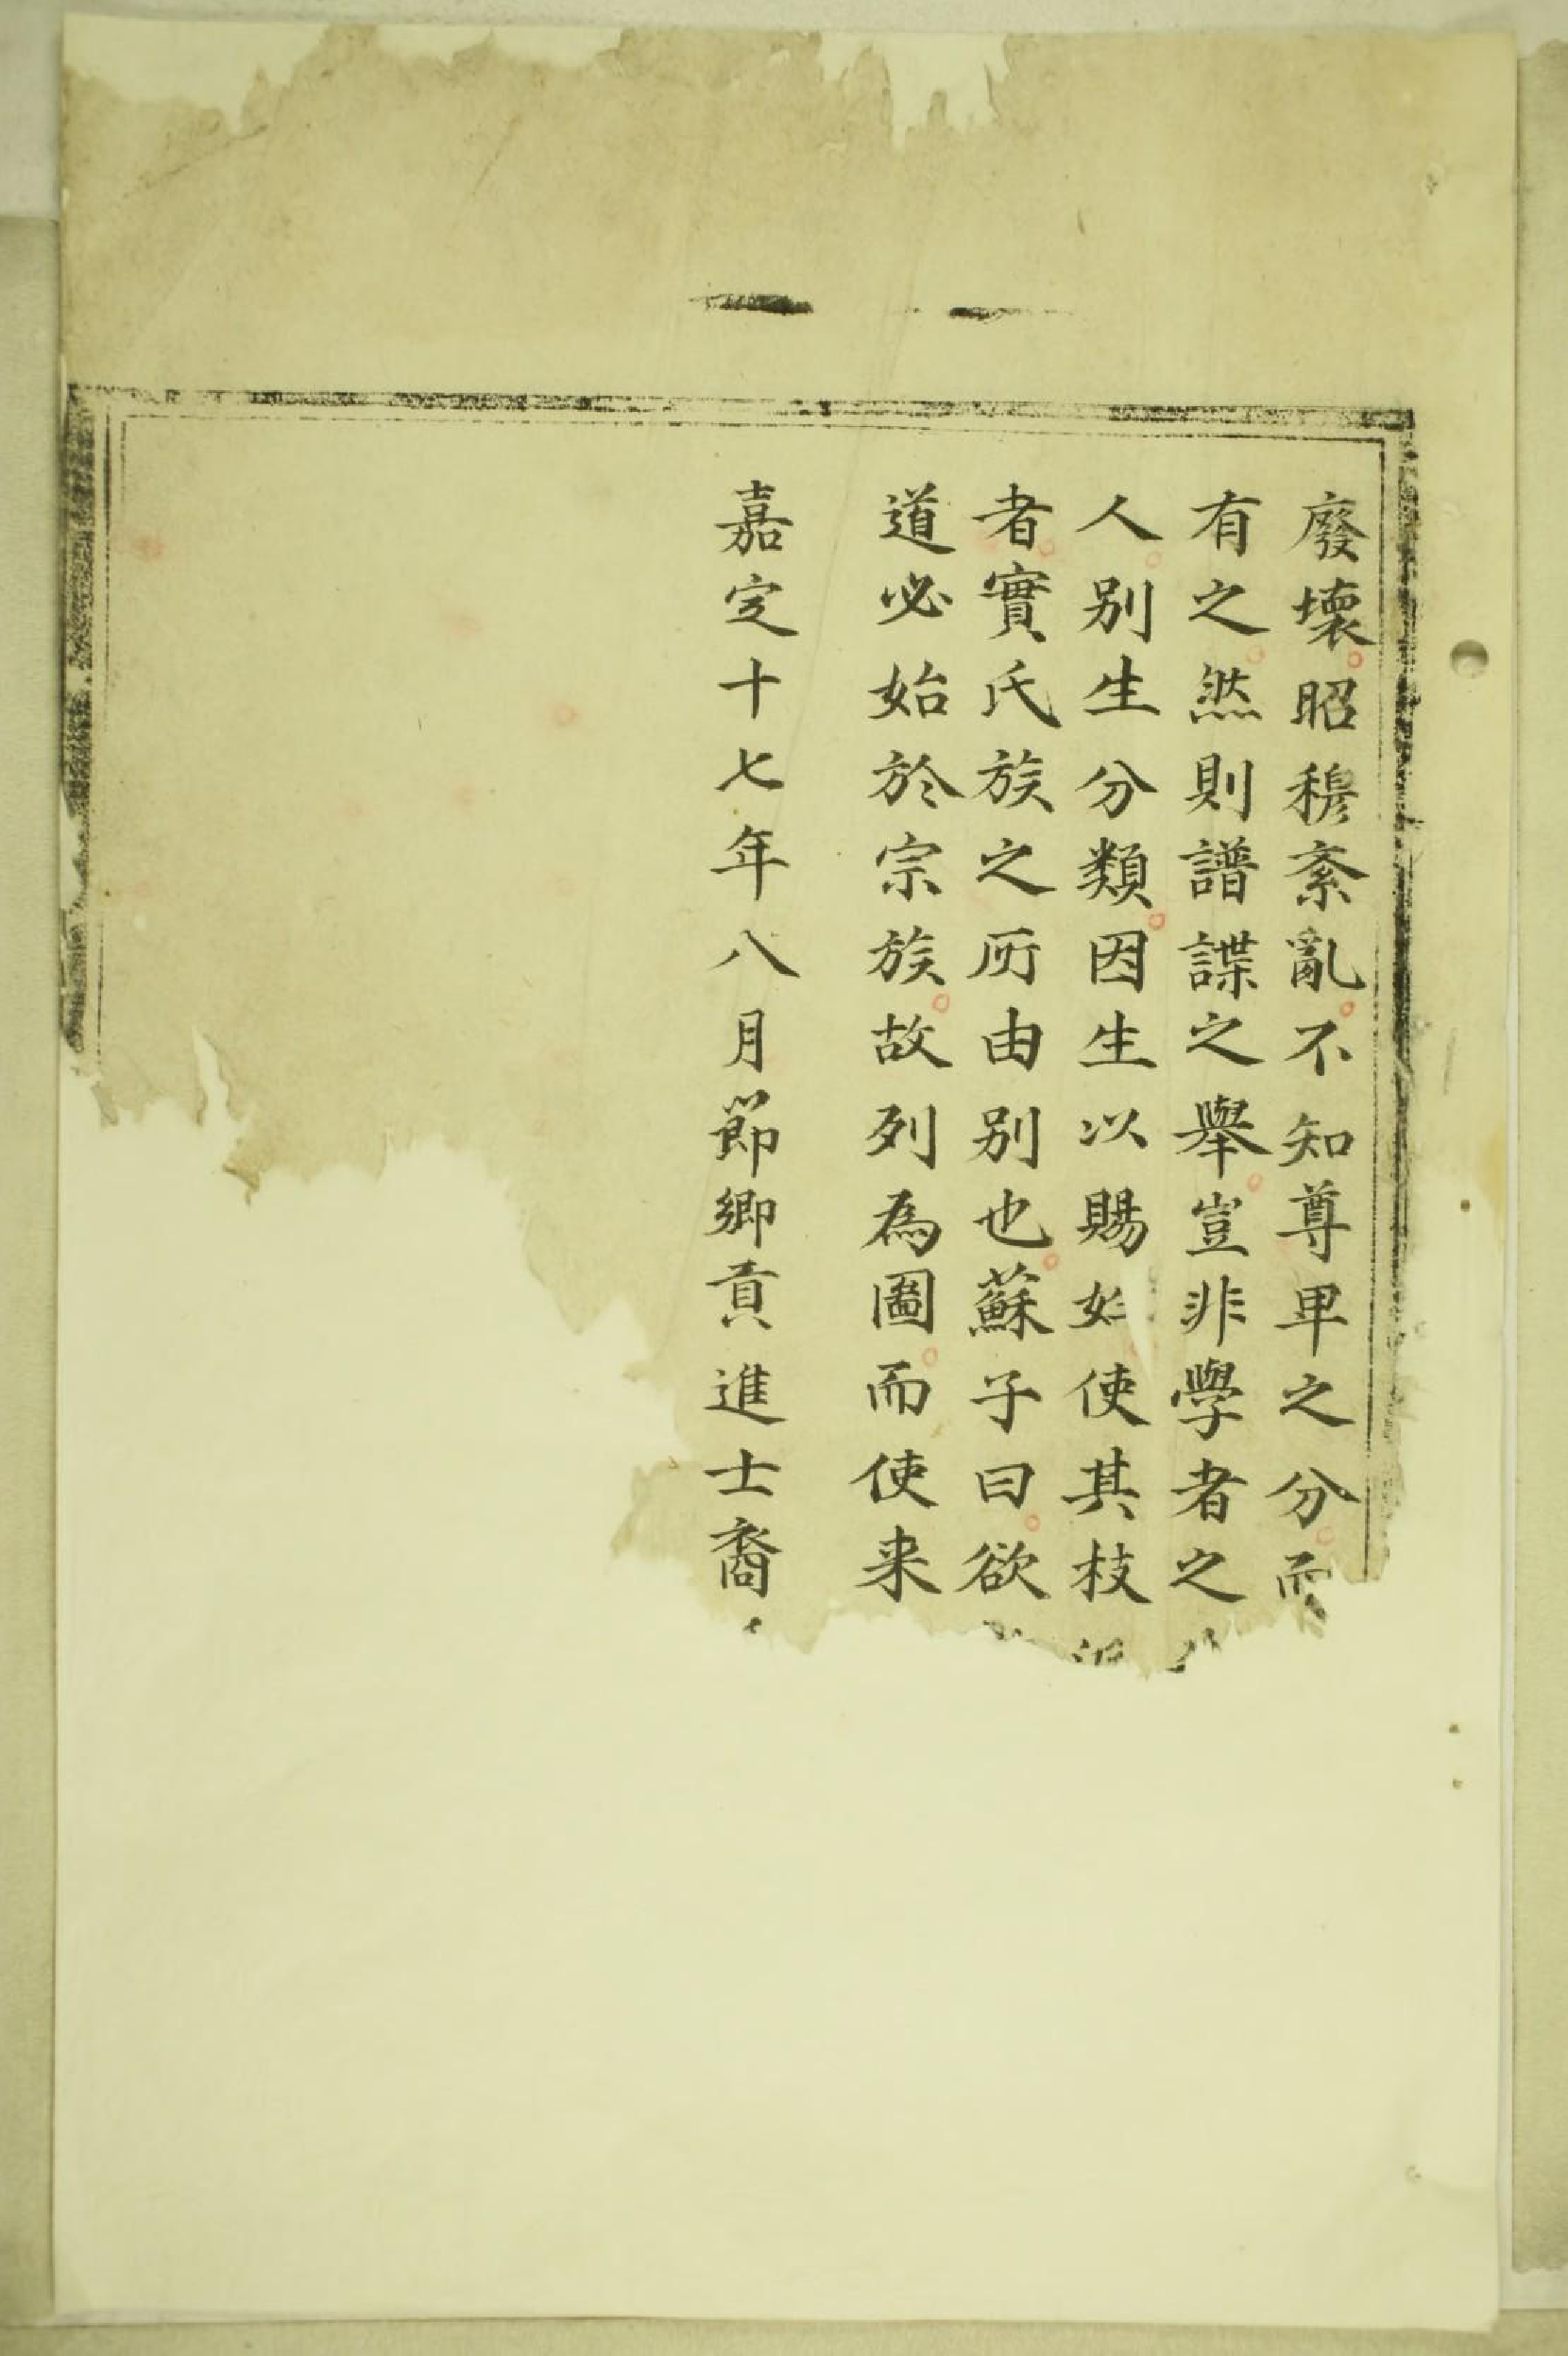 廢壞昭穆紊亂不知尊卑之分而
有之然則譜諜之舉豈非學者之
人别生分類因生以賜姓使其枝
者實氏族之所由别也蘇子曰欲
道必始於宗族故列為圖而使来
嘉定十七年八月節鄉貢進士裔